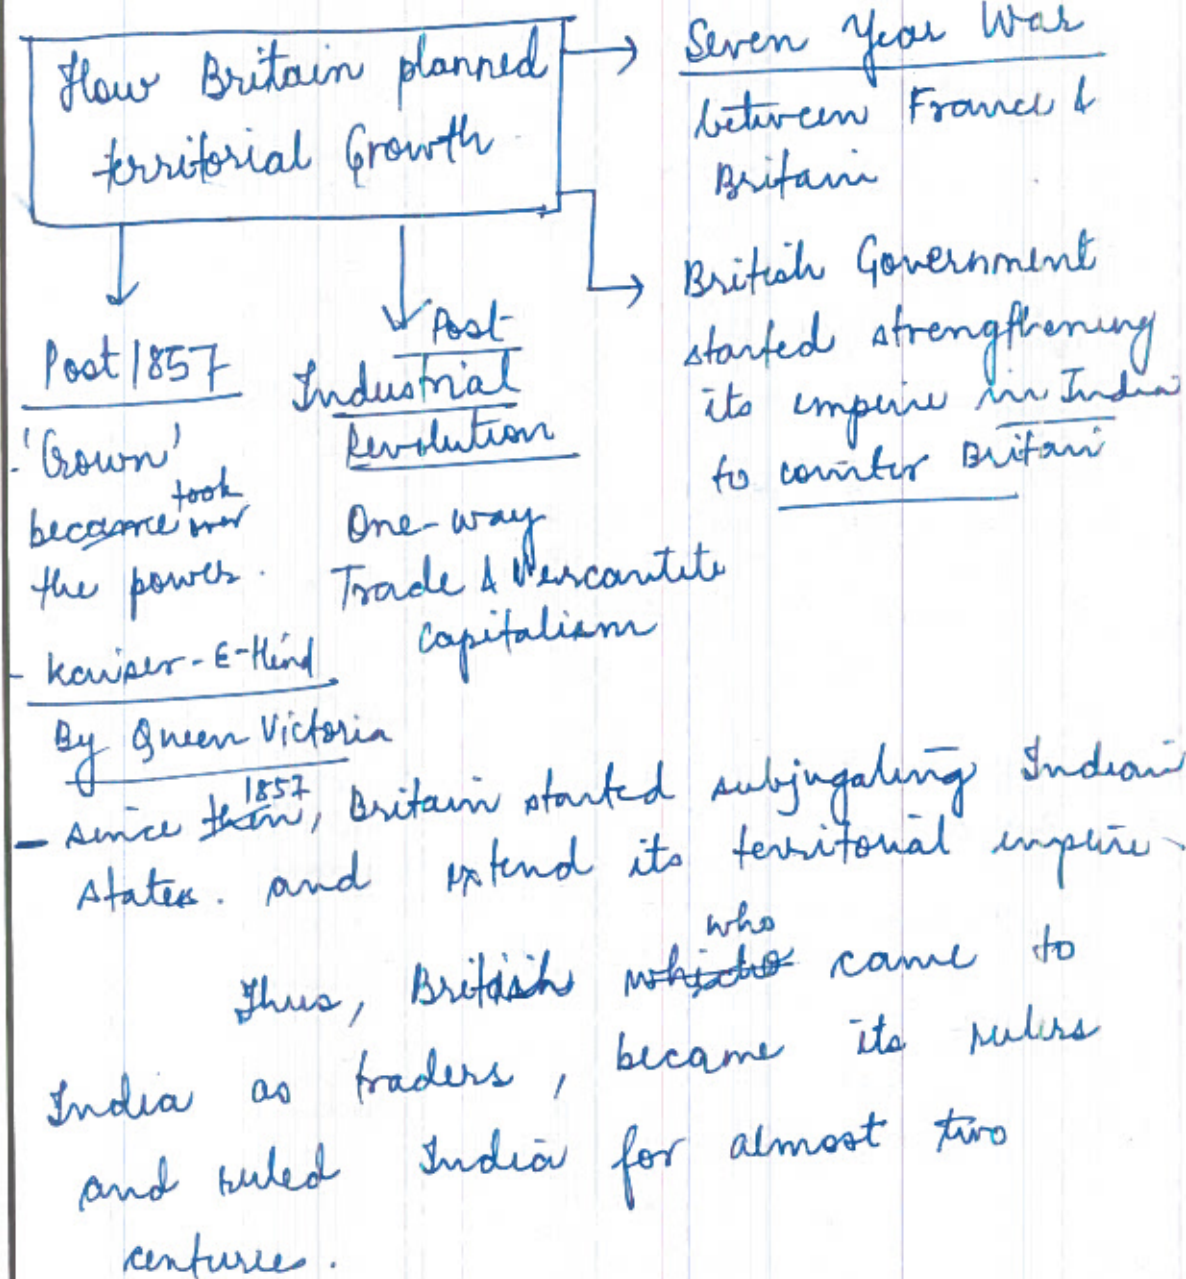 How Britain planned
territorial Growth
Seven Year War
between France &
Britain
British Government
started strengthening
its empire in India
to counter Britain
Post 1857
- 'Crown'
became took over
the power.
- Kaiser-E-Hind
By Queen Victoria
Post-
Industrial
Revolution
One-way
Trade & Mercantile
capitalism
- since then 1857, Britain started subjugating Indian
states. and extend its territorial empire.
Thus, British which who came to
India as traders, became its rulers
and ruled India for almost two
centuries.